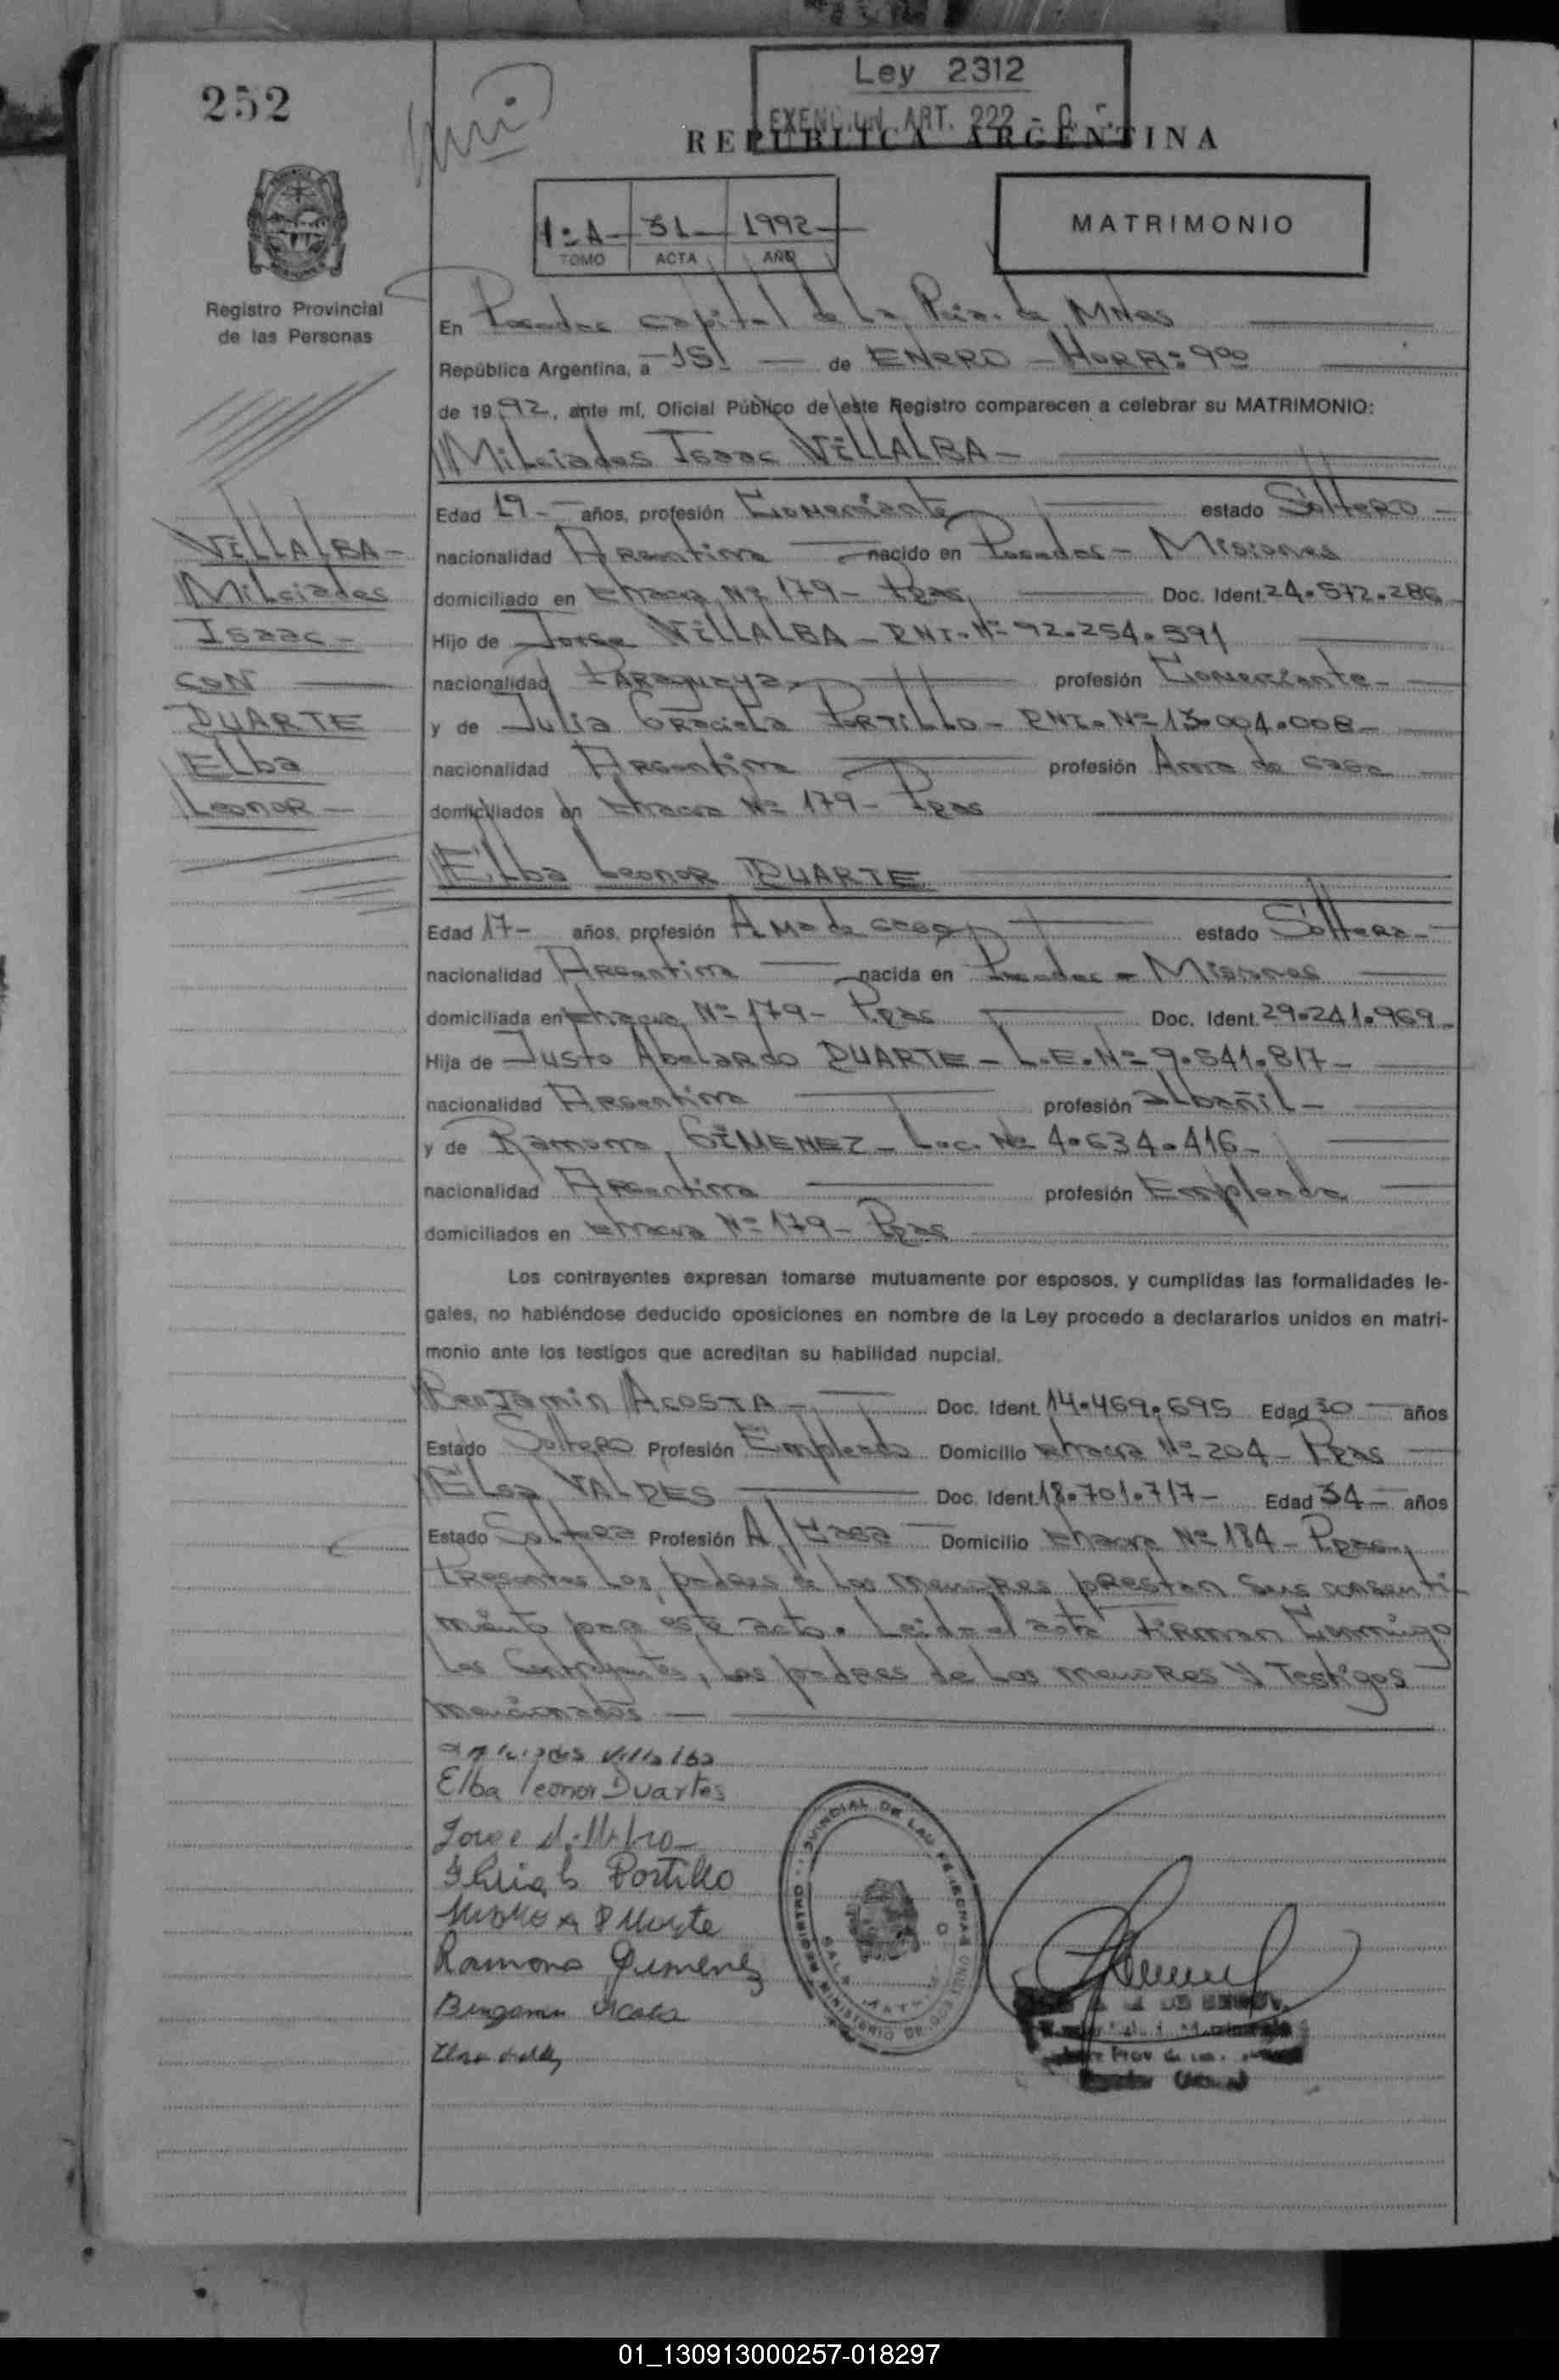 252
Ley 2312
EXENCION ART. 222 - C.
REPUBLICA ARGENTINA
1º A 31 1992
TOMO ACTA AÑO
MATRIMONIO
Registro Provincial
de las Personas
En Posadas capital de la Pcia. de Mnes
República Argentina, a 15 de ENERO - HORA: 9 00
de 1992, ante mí, Oficial Público de este Registro comparecen a celebrar su MATRIMONIO:
Milciades Isaac VILLALBA -
Edad 19 - años, profesión Comerciante estado Soltero -
nacionalidad Argentina nacido en Posadas - Misiones
domiciliado en Chacra Nº 179 - Pdas, Doc. Ident. 24.572.286
Hijo de Jorge VILLALBA - DNI. Nº 92.254.591
nacionalidad Paraguaya profesión Comerciante -
y de Julia Graciela PORTILLO - DNI. Nº 13.004.008 -
nacionalidad Argentina profesión Ama de casa
domiciliados en Chacra Nº 179 - Pdas
VILLALBA -
Milciades
Isaac -
CON
DUARTE
Elba
Leonor -
Elba Leonor DUARTE
Edad 17 - años, profesión Ama de casa estado Soltera -
nacionalidad Argentina nacida en Posadas - Misiones
domiciliada en Chacra Nº 179 - Pdas Doc. Ident. 29.241.969 -
Hija de Justo Abelardo DUARTE - L.E. Nº 9.541.817 -
nacionalidad Argentina profesión albañil -
y de Ramona GIMENEZ - L.c. Nº 4.634.416 -
nacionalidad Argentina profesión Empleada
domiciliados en Chacra Nº 179 - Pdas
Los contrayentes expresan tomarse mutuamente por esposos, y cumplidas las formalidades le-
gales, no habiéndose deducido oposiciones en nombre de la Ley procedo a declararlos unidos en matri-
monio ante los testigos que acreditan su habilidad nupcial.
Benjamin ACOSTA - Doc. Ident. 14.469.695 Edad 30 años
Estado Soltero Profesión Empleado Domicilio Chacra Nº 204 - Pdas
Elsa VALDES Doc. Ident. 18.701.717 - Edad 34 - años
Estado Soltera Profesión A/Casa Domicilio Chacra Nº 184 - Pdas,
Presentes los padres de los menores prestan sus consenti
miento para este acto. Leida el acta Firman Conmigo
los Contrayentes, los padres de los menores y Testigos
mencionados -
Milciades Villalba
Elba leonor Duartes
Jorge Villalba
Portillo
Ramona Gimenez
REGISTRO PROVINCIAL DE LAS PERSONAS
MINISTERIO DE GOB
01_130913000257-018297